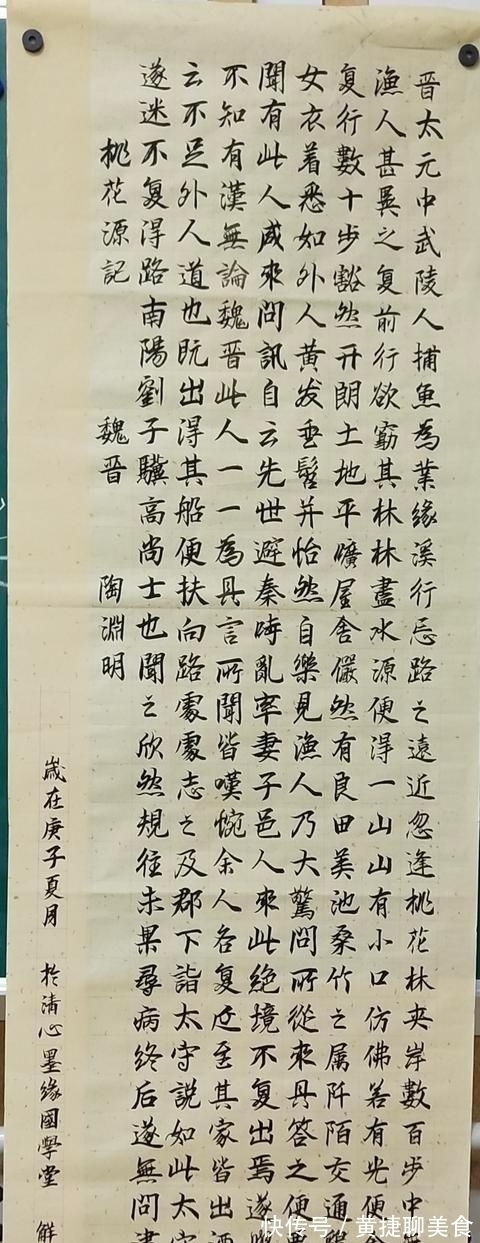 晋太元中武陵人捕魚為業緣溪行忘路之遠近忽逢桃花林夹岸數百步中
漁人甚異之复前行欲窮其林林盡水源便得一山山有小口仿佛若有光便舍
复行數十步豁然开朗土地平曠屋舍儼然有良田美池桑竹之属阡陌交通
女衣着悉如外人黄发垂髫并怡然自樂見漁人乃大驚問所從來具答之便
聞有此人咸來問訊自云先世避秦時亂率妻子邑人來此绝境不复出焉遂
不知有漢無論魏晋此人一一為具言所聞皆嘆惋余人各复延至其家皆出酒
云不足外人道也既出得其船便扶向路處處志之及郡下詣太守説如此太守
遂迷不复得路南陽劉子驥高尚士也聞之欣然規往未果尋病终后遂無問津
桃花源記 魏晋 陶淵明
歲在庚子夏月 於清心墨緣國學堂
快传号 / 黄捷聊美食